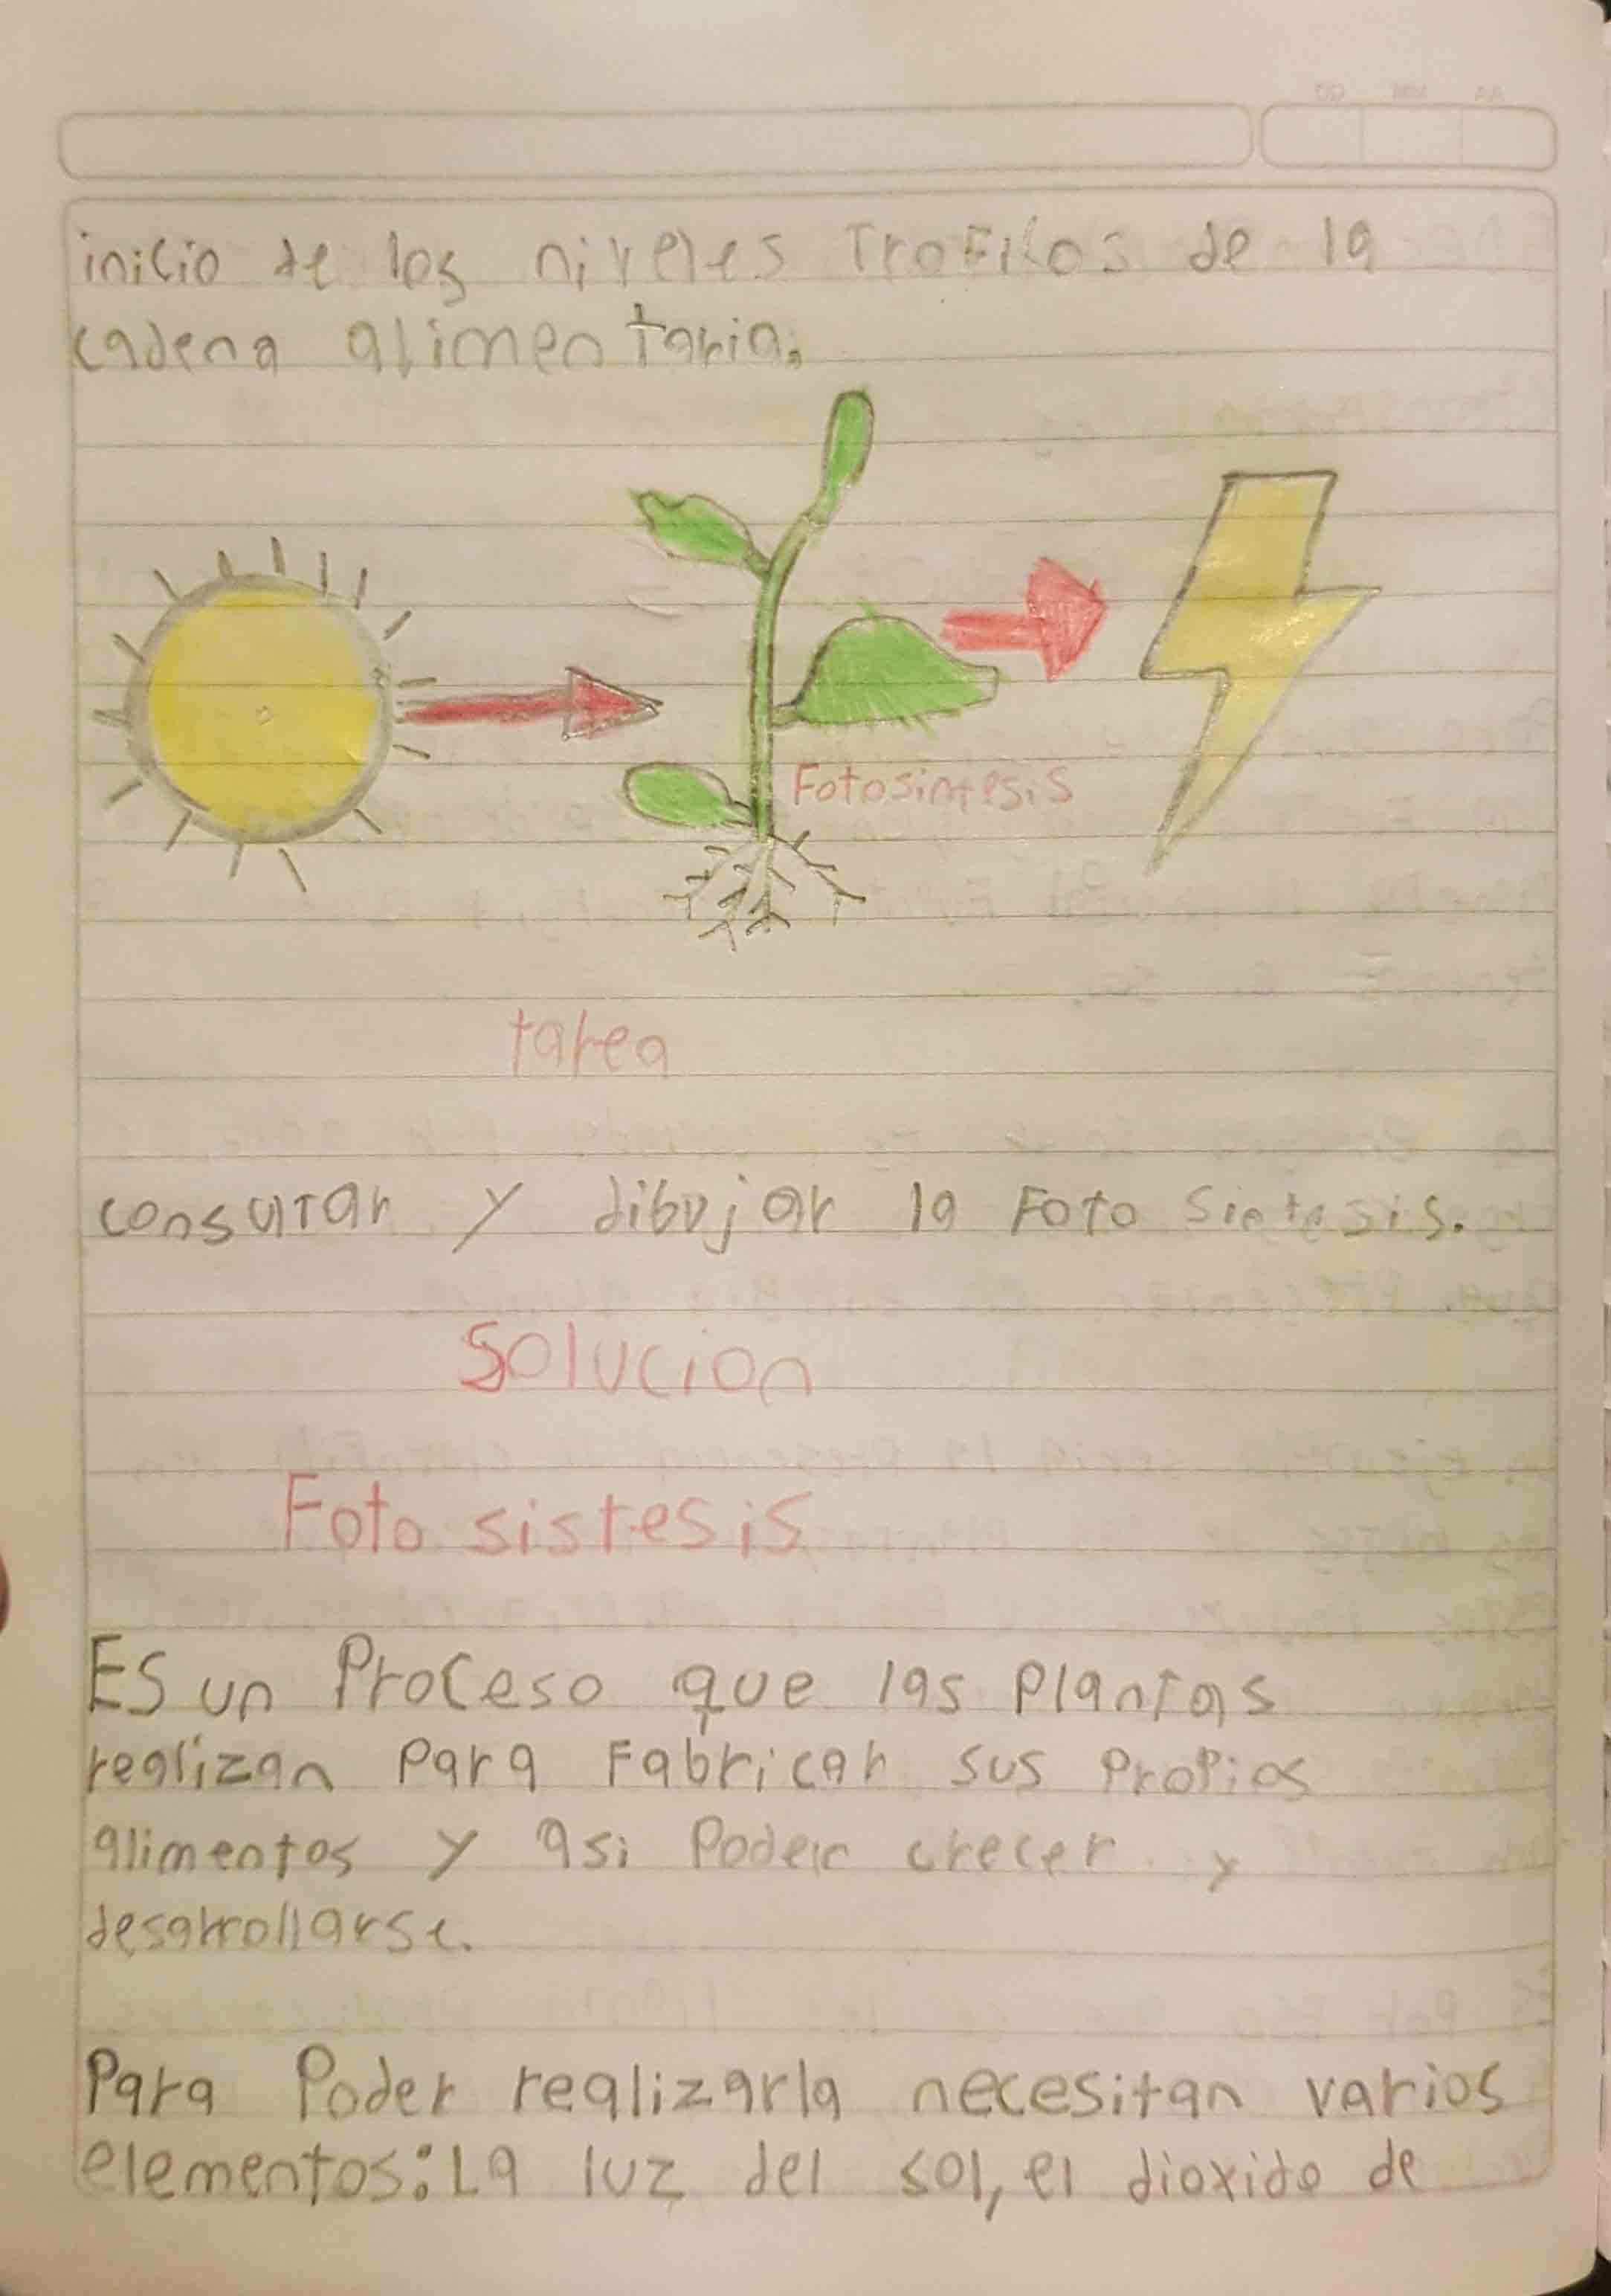 inicio de los niveles Troficos de la
cadena alimentaria.
Fotosintesis
tarea
consultar y dibujar la Foto Sietesis.
Solucion
Foto sistesis
Es un Proceso que las Plantas
realizan Para Fabricar sus Propios
alimentos y asi Poder crecer y
desarrollarse.
Para Poder realizarla necesitan varios
elementos: La luz del sol, el dioxido de